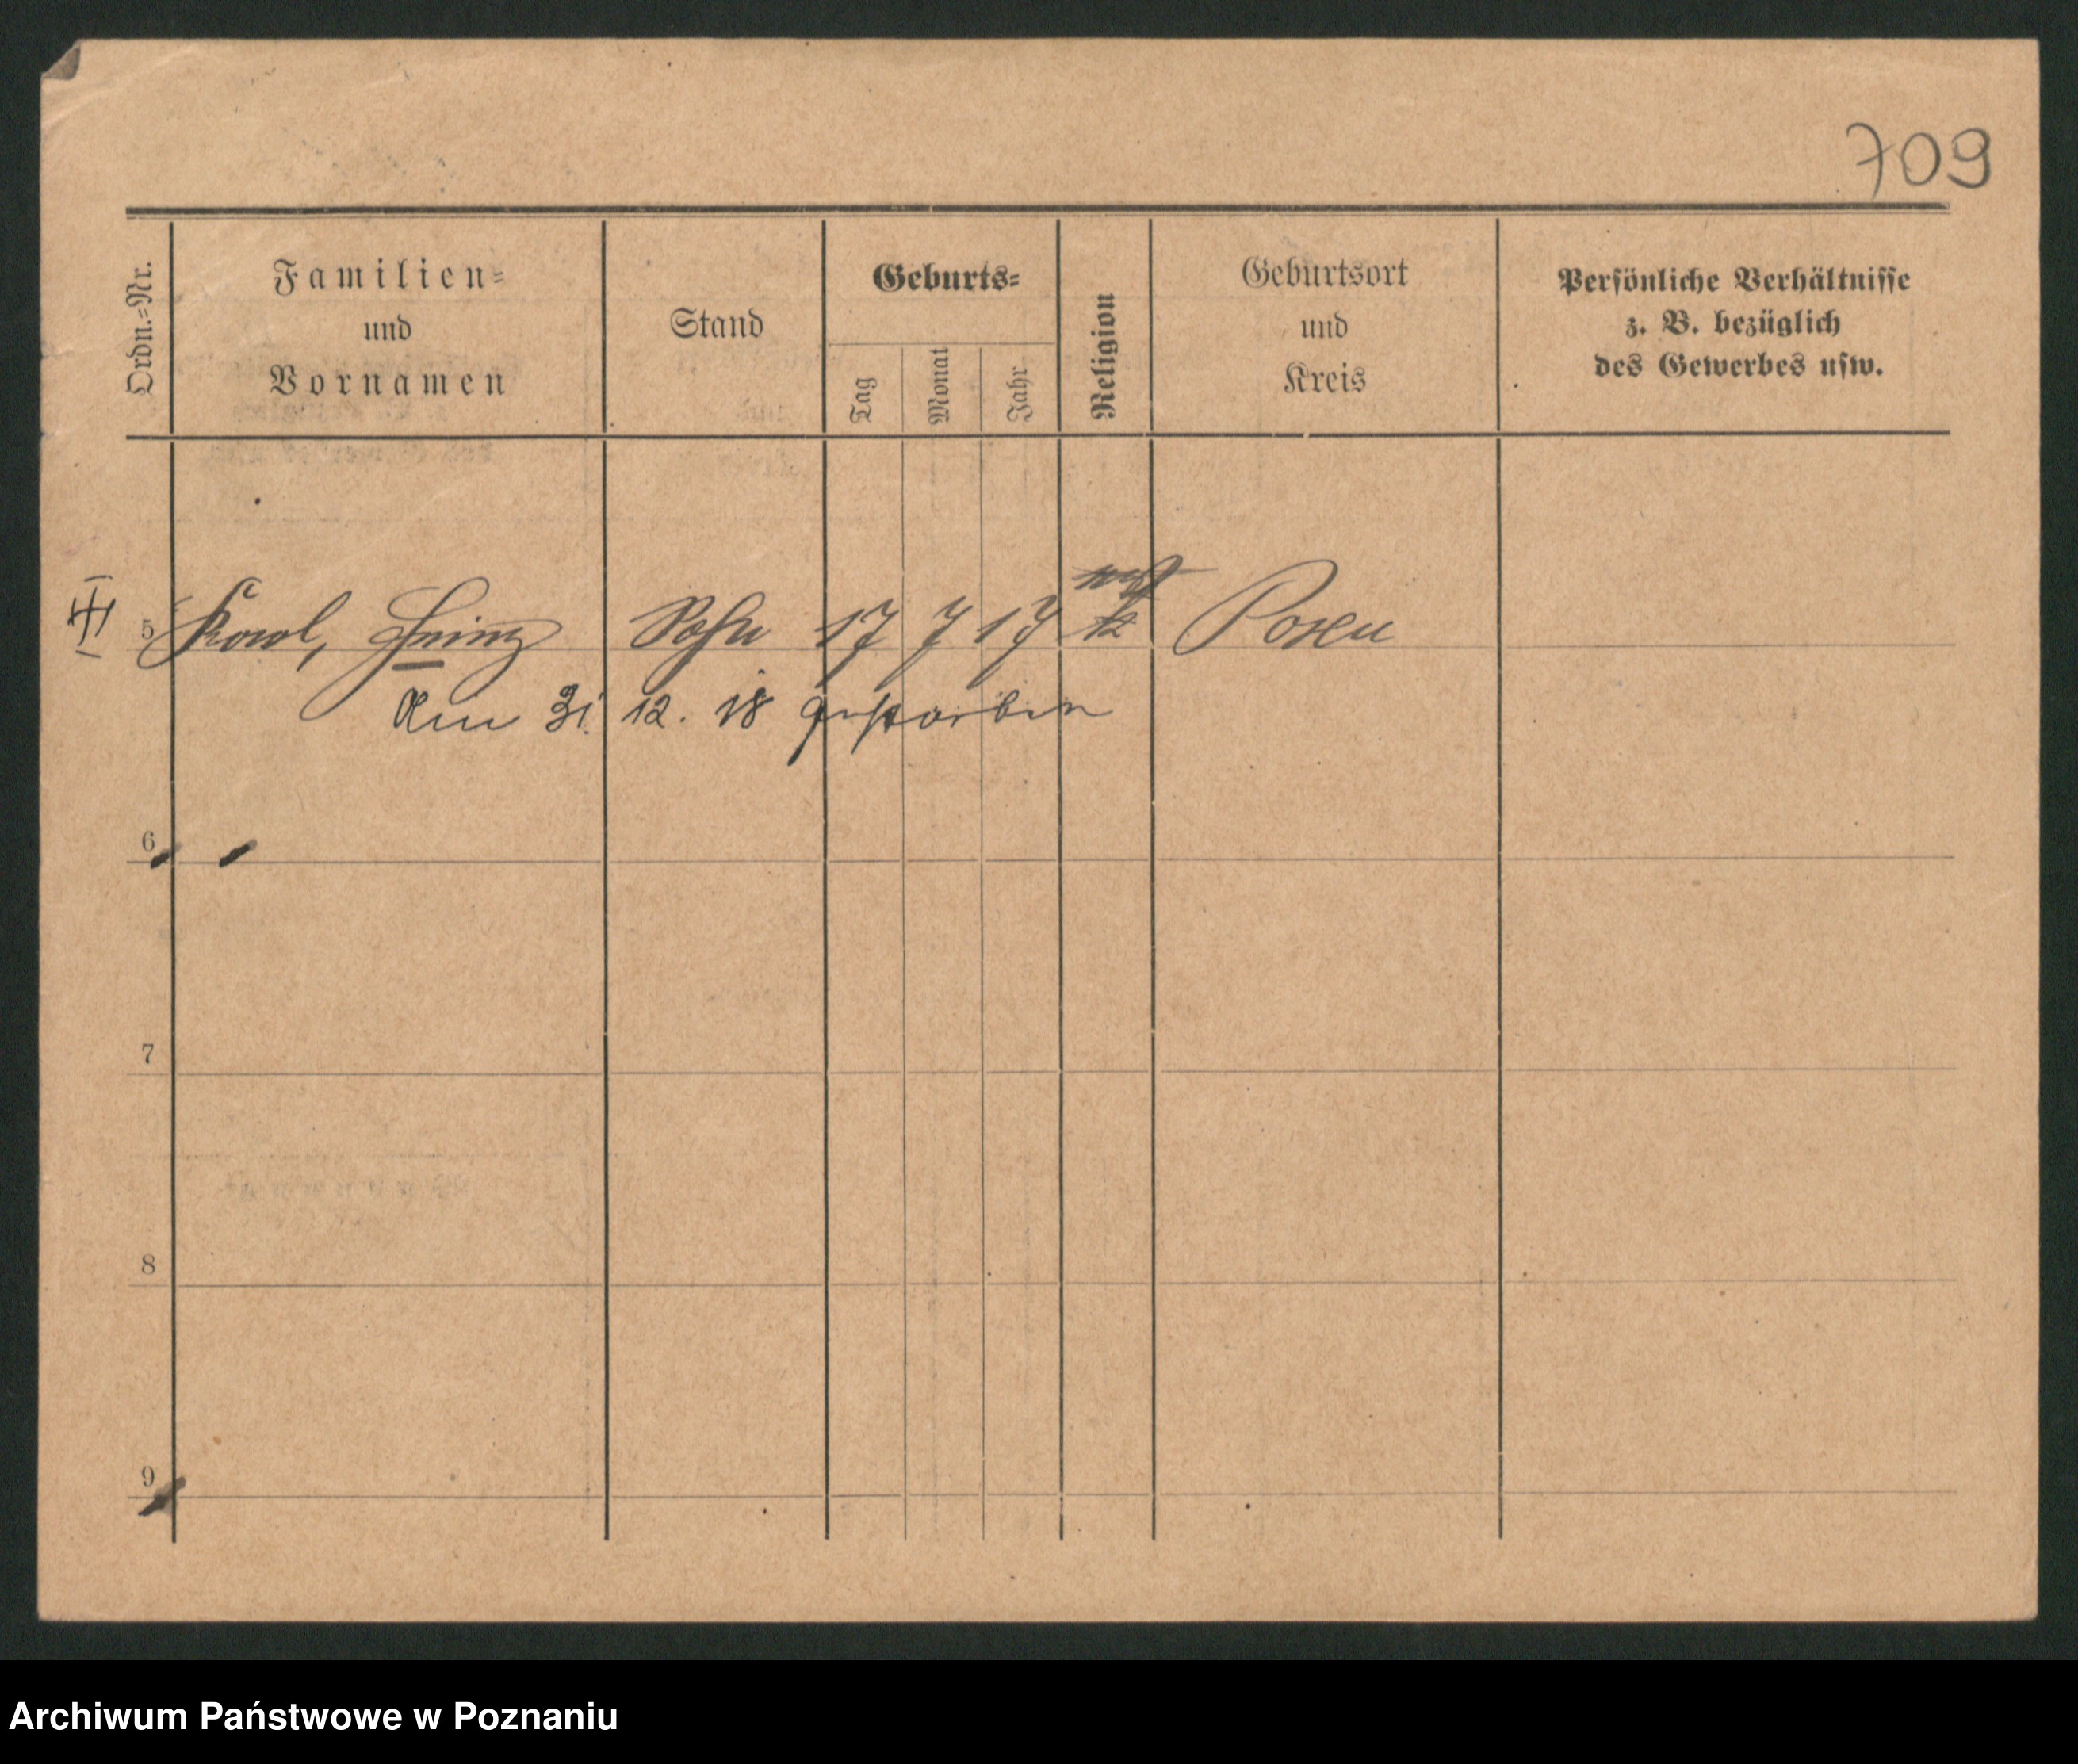 709
Ordn.-Nr.
Familien-
und
Vornamen
Stand
Geburts-
Tag
Monat
Jahr
Religion
Geburtsort
und
Kreis
Persönliche Verhältnisse
z. B. bezüglich
des Gewerbes usw.
5 Karl, Heinz Sohn 17 7 17 k Posen
Am 31. 12. 18 gestorben
6
7
8
9
Archiwum Państwowe w Poznaniu